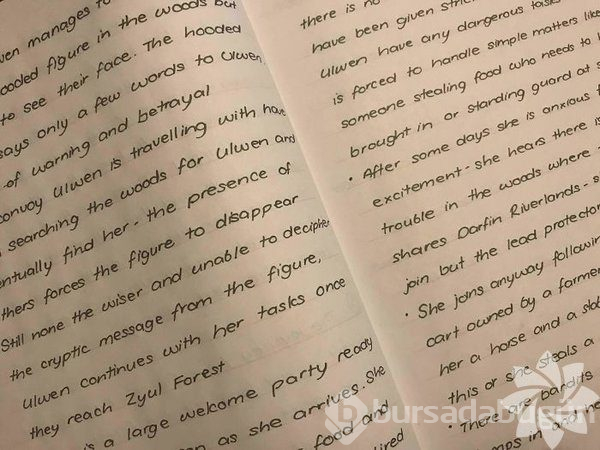 manages to
figure in the woods but
to see their face. The hooded
says only a few words to Ulwen
of warning and betrayal
convoy Ulwen is travelling with have
searching the woods for Ulwen and
find her - the presence of
forces the figure to disappear
Still none the wiser and unable to decipher
the cryptic message from the figure,
Ulwen continues with her tasks once
they reach Zyul Forest
is a large welcome party ready
as she arrives. She
food and
there is no
have been given
Ulwen have any dangerous tasks
is forced to handle simple matters like
someone stealing food who needs to
brought in or standing guard at
• After some days she is anxious
excitement - she hears there is
trouble in the woods where
shares Darfin Riverlands -
join but the lead protector
• She joins anyway following
cart owned by a farmer
her a horse and a
this or she steals a
• There are bandits
in and
bursadabugun